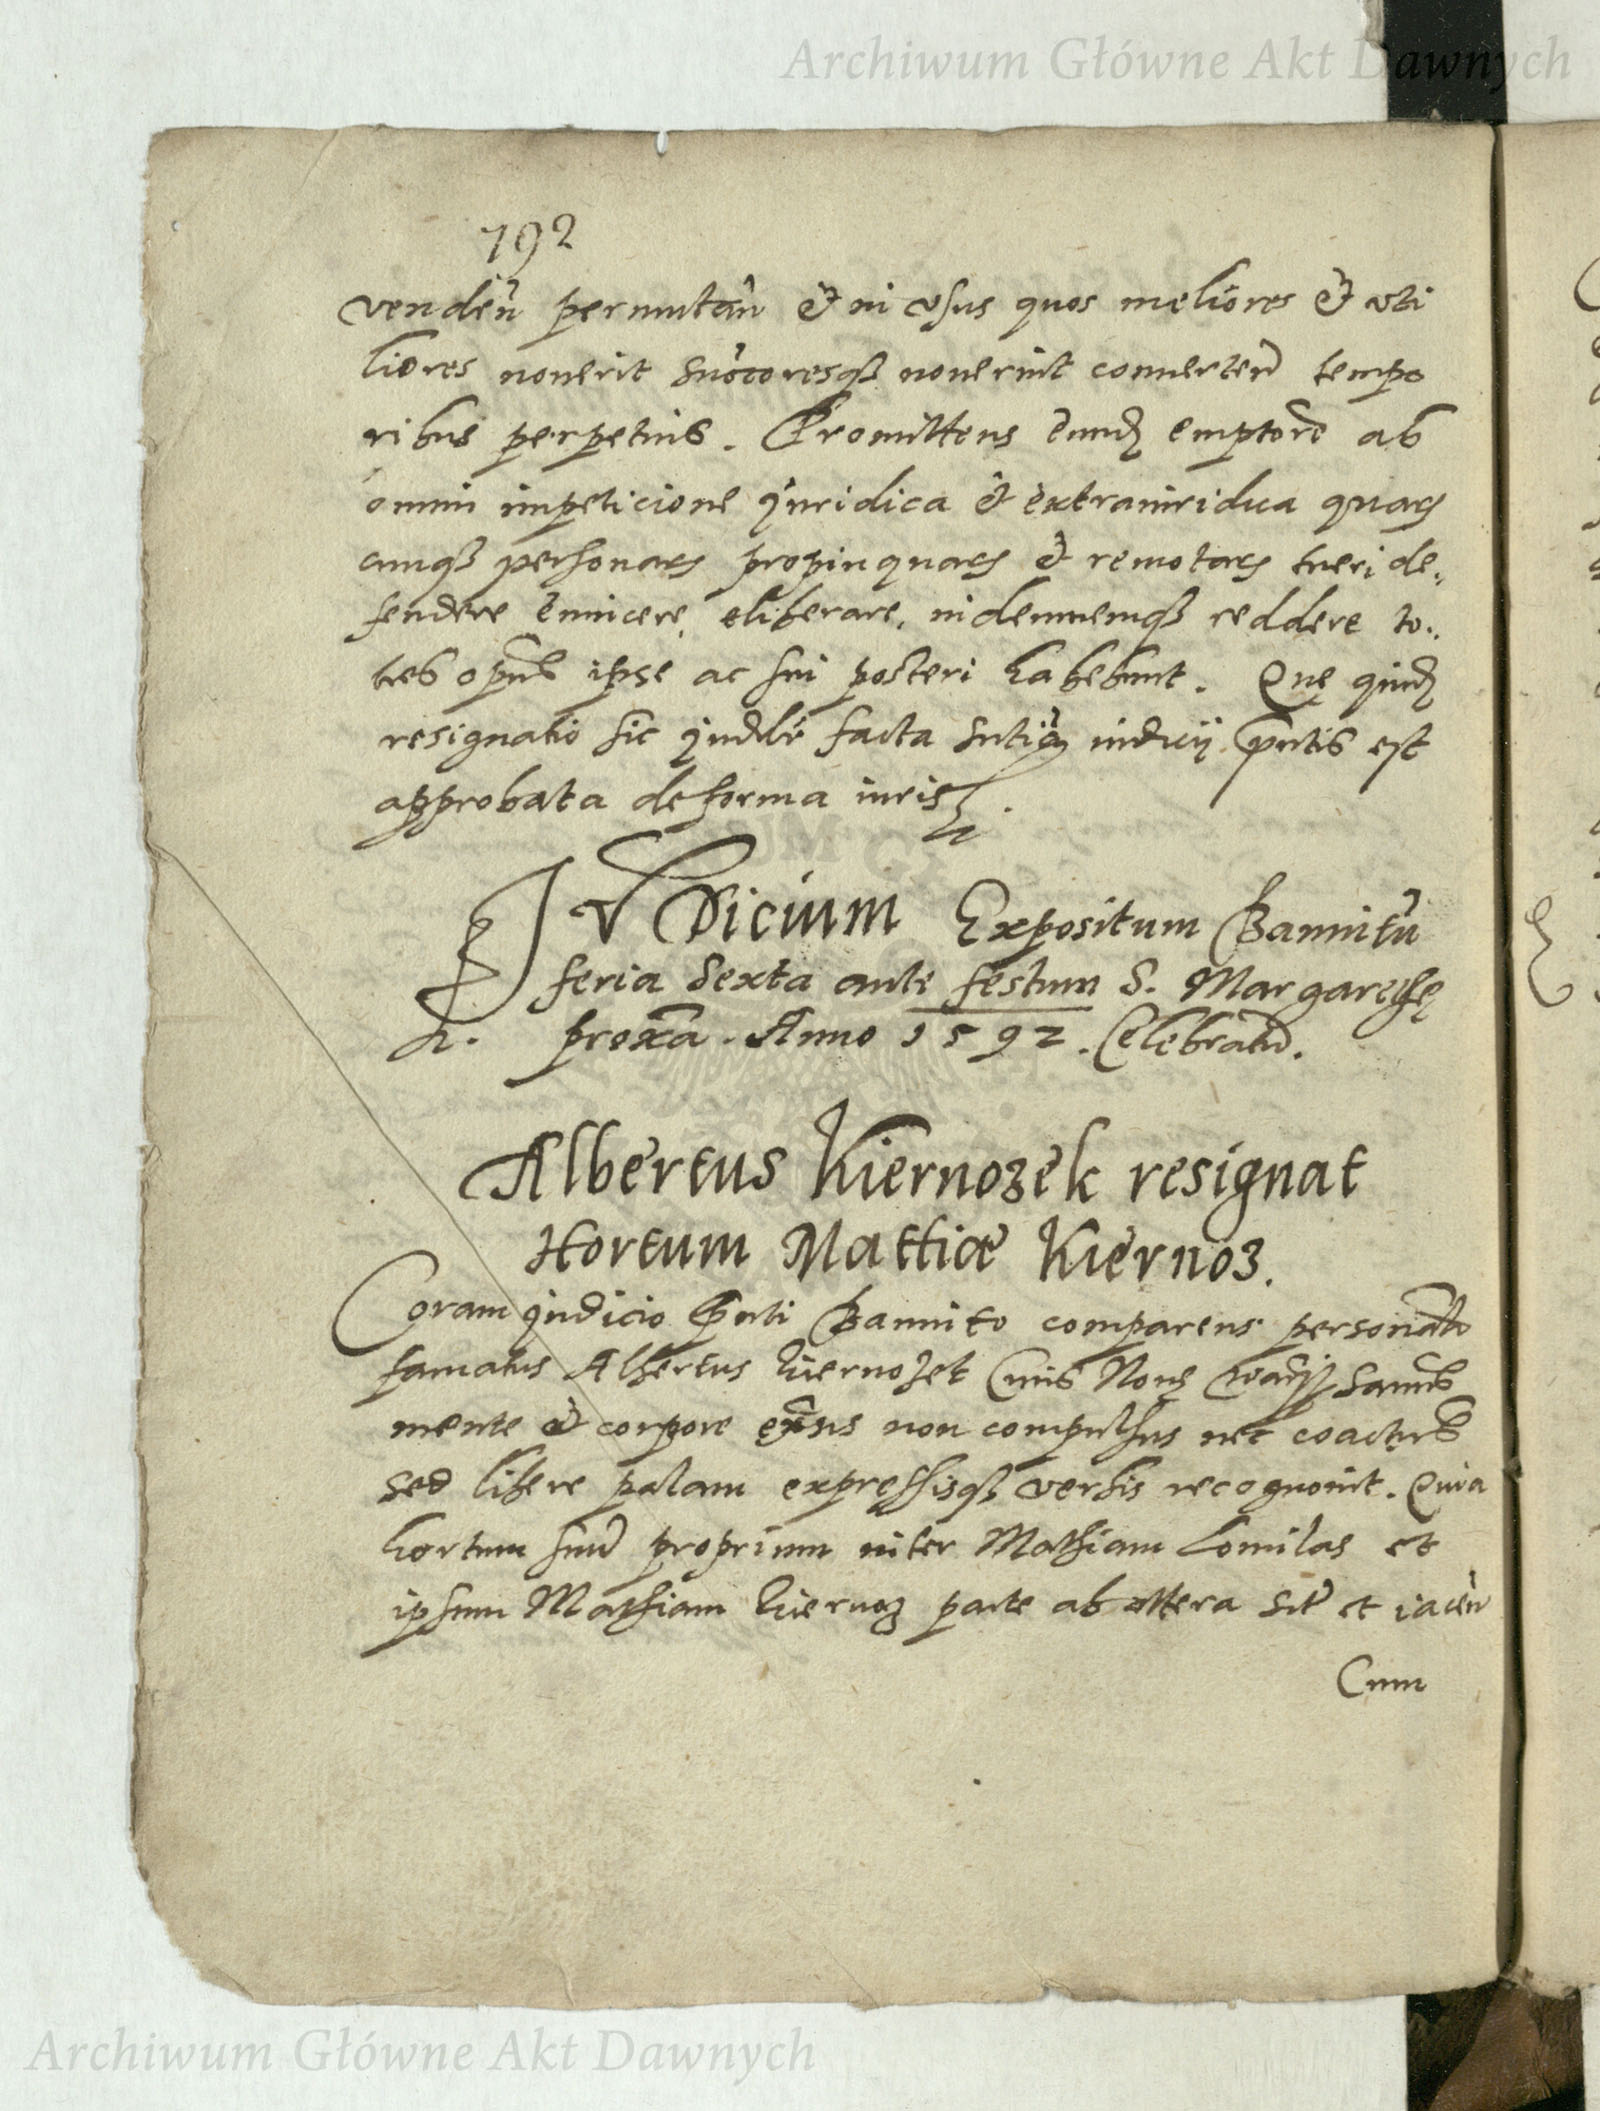 Archiwum Główne Akt Dawnych
792
venden̄ permutan̄ & in vsus quos meliores & vti
liores nouerit Succoresq̃ nouerint conuerten̄ tempo
ribus perpetuis. Promittens eund emptorē ab
omni impeticione juridica & extraiuridica quar
cunq̃ personar propinquar & remotar tueri de,
fendere euincere, eliberare, indemnemq̃ reddere to..
ties ipse ac sui posteri habebunt. Quę quid
resignatio sic facta est
approbata de forma iuris.
IVDicium Expositum Bannitū
feria Sexta ante festum S. Margarethę
proxa. Anno 1592. Celebratū.
Albertus Kiernozek resignat
Hortum Mattiæ Kiernoz.
Coram judicio Pnti Bannito comparens personalr
famatus Albertus Kiernozek Ciuis Nouę sanus
mente & corpore non compulsus nec coactus
sed libere palam expressisq̃ verbis recognouit. Quia
hortum suū proprium inter Mathiam Lomilas et
ipsum Mathiam Kiernoz parte ab altera sit et iacen̄
Cum
Archiwum Główne Akt Dawnych